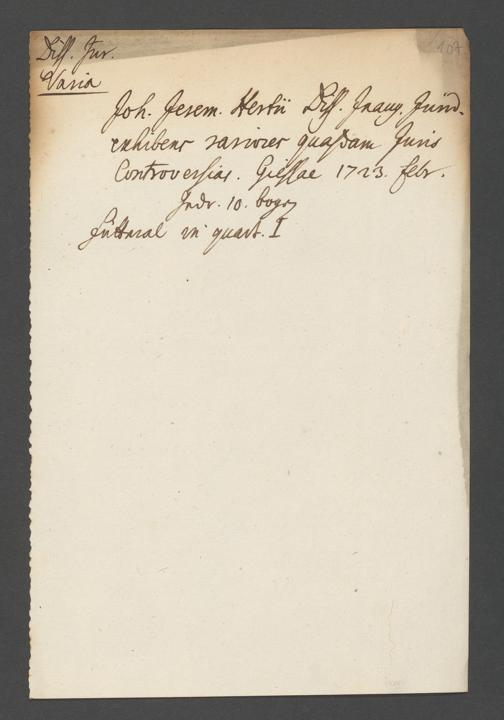 Diss. Jur.
Varia
104
Joh. Jerem. Hertii Diss. Inaug. Jurid.
exhibens rariores quasdam Juris
Controversias. Giessae 1723. febr.
10. bogen
Futteral in quart. I